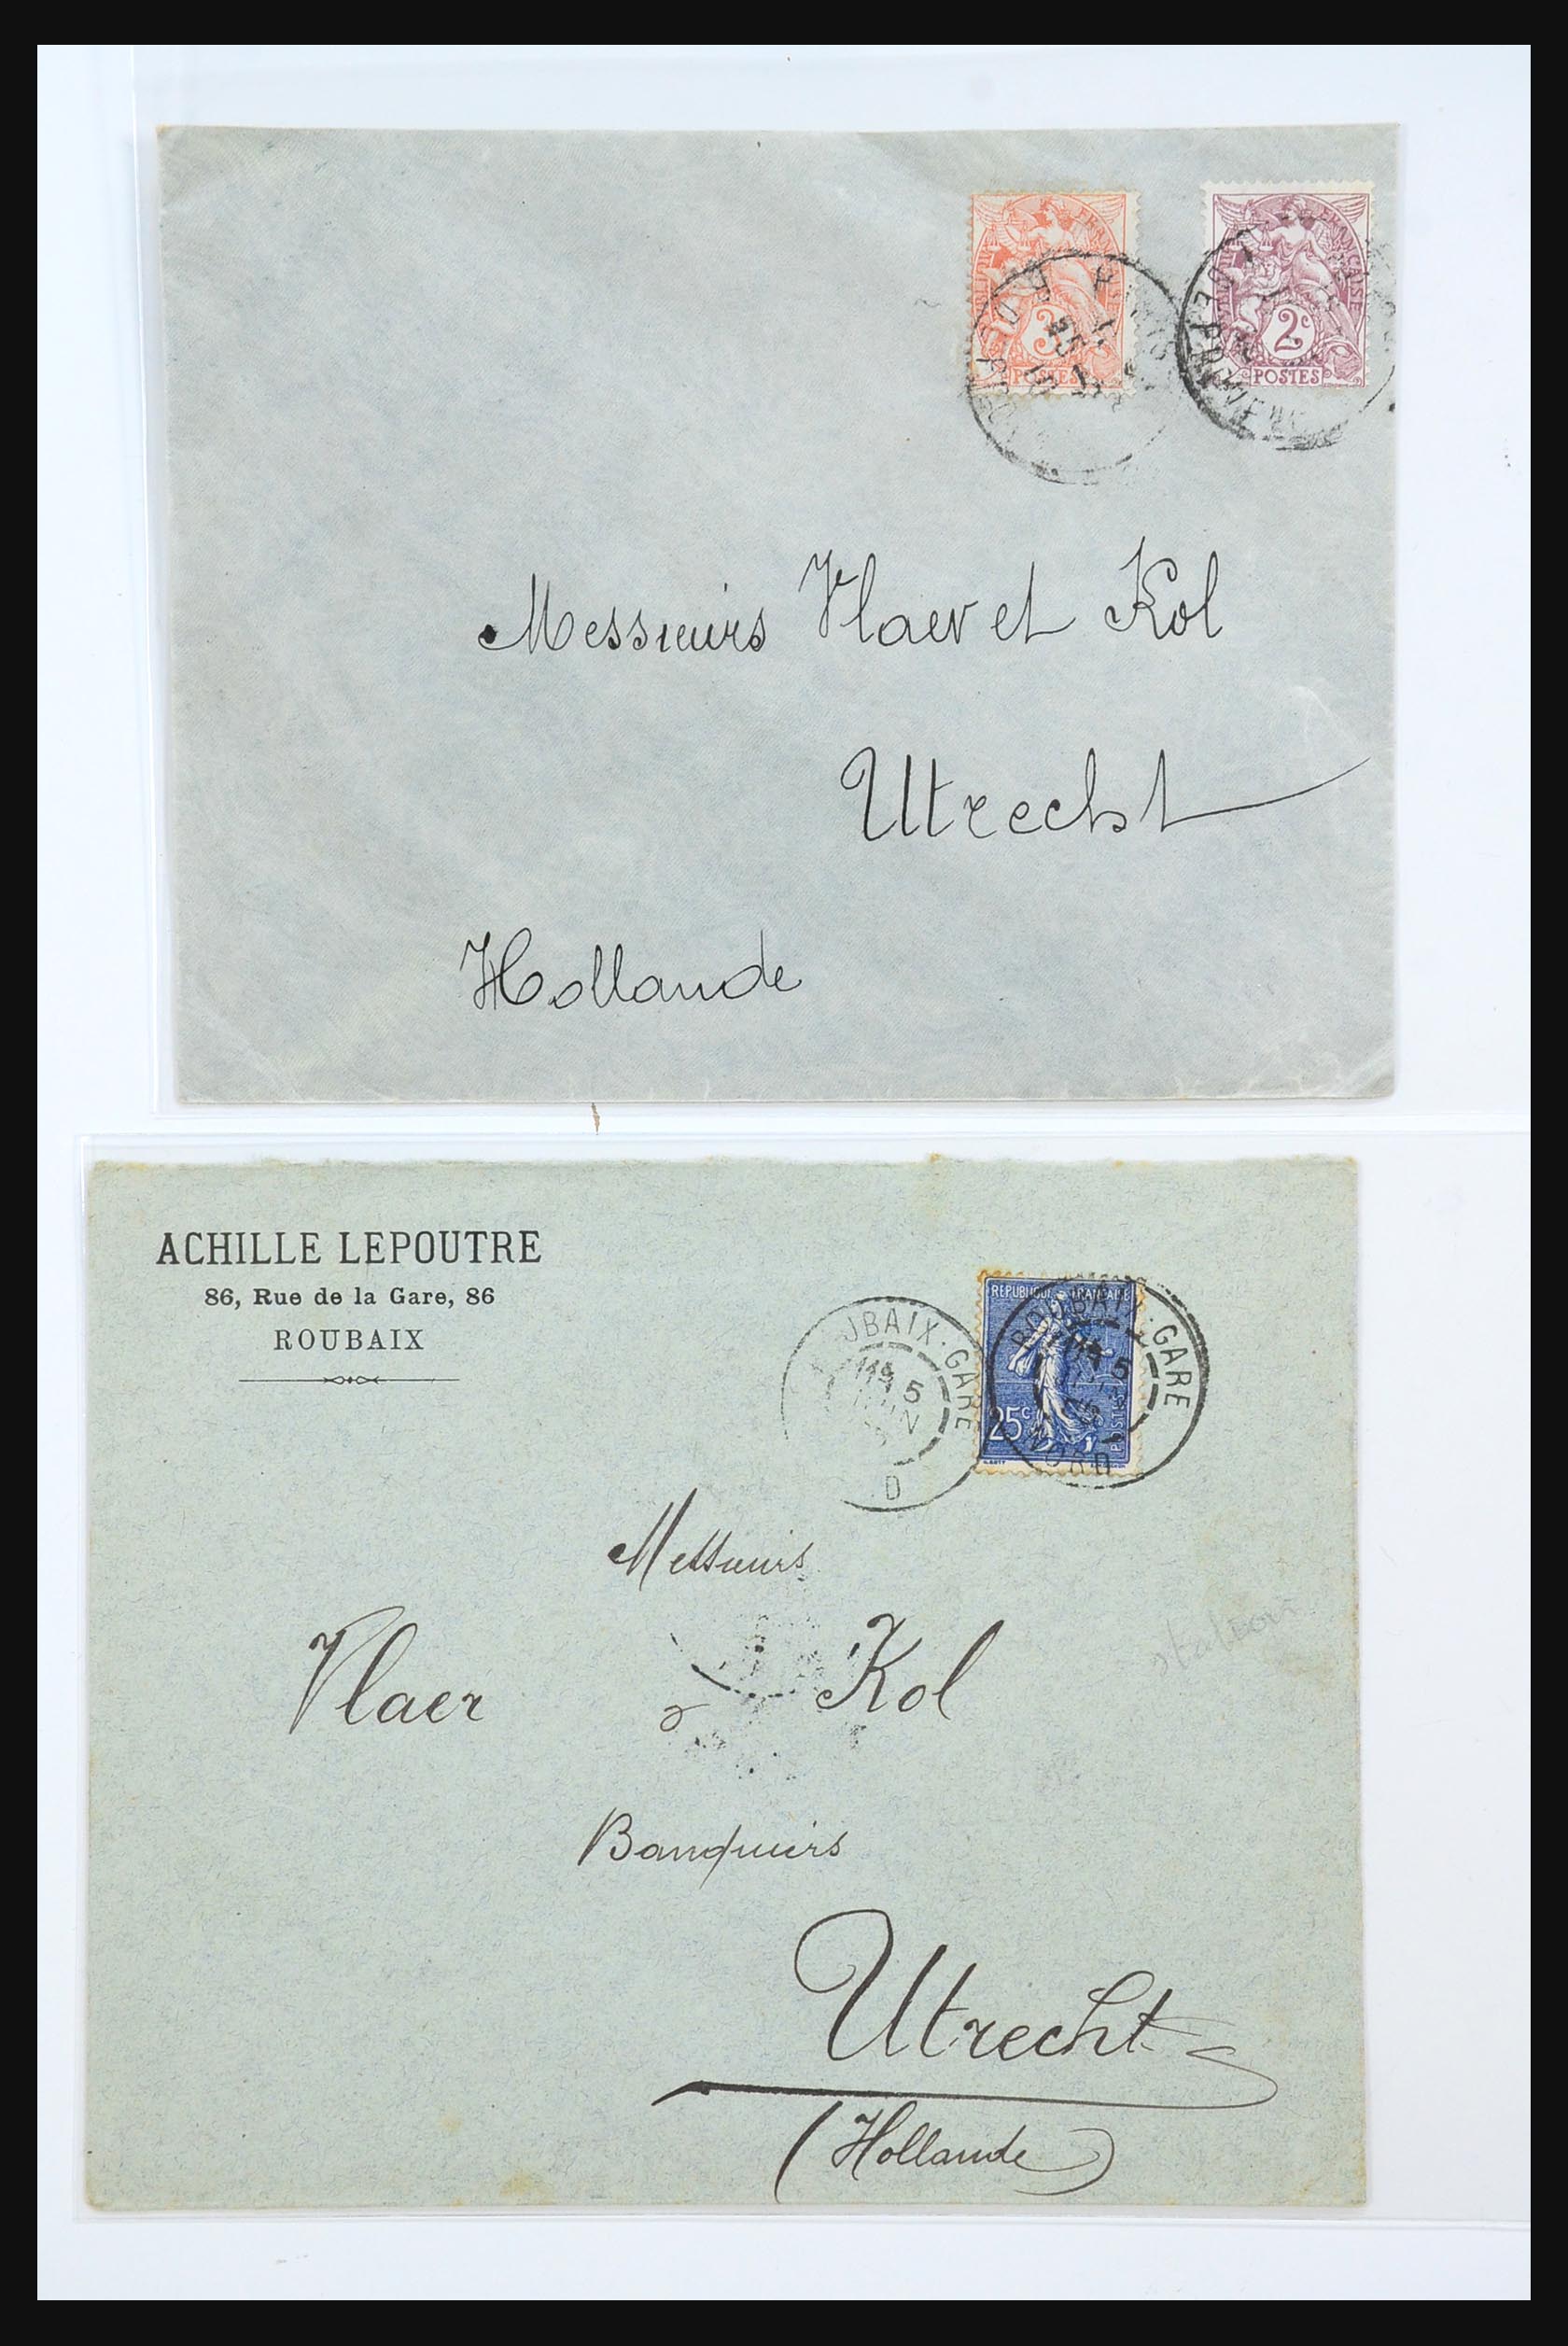 3c
POSTES
2c
POSTES
Messieurs Vlaer et Kol
Utrecht
Hollande
ACHILLE LEPOUTRE
86, Rue de la Gare, 86
ROUBAIX
REPUBLIQUE FRANCAISE
25c
POSTES
ROUBAIX-GARE
NORD
UBAIX-GARE
5
D
Messieurs
Vlaer & Kol
Banquiers
Utrecht
(Hollande)